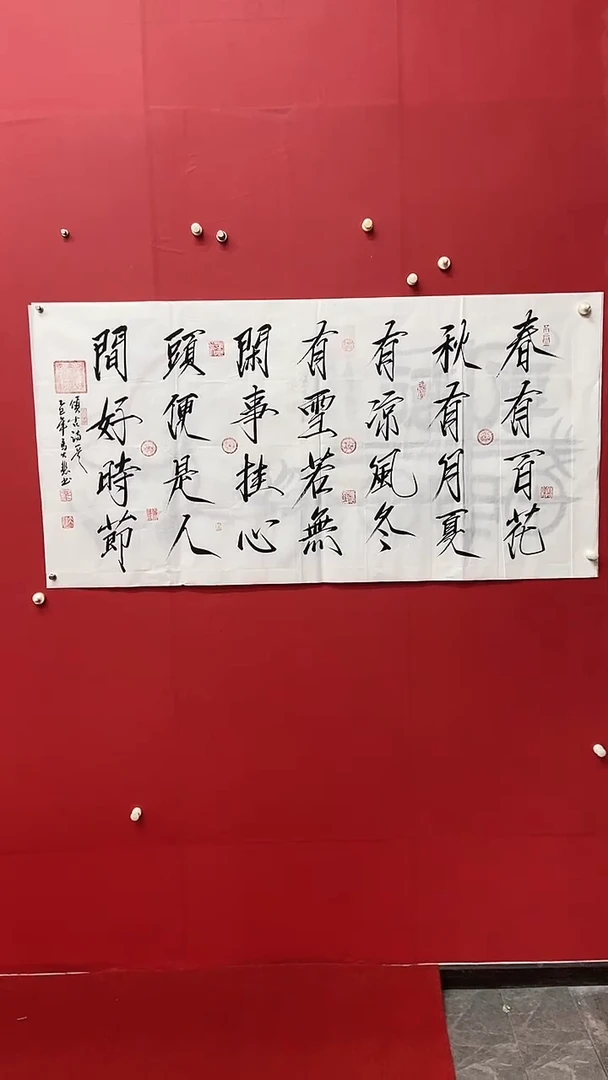 春有百花
秋有月夏
有凉風冬
有雪若無
閑事挂心
頭便是人
間好時節
乙巳年 書